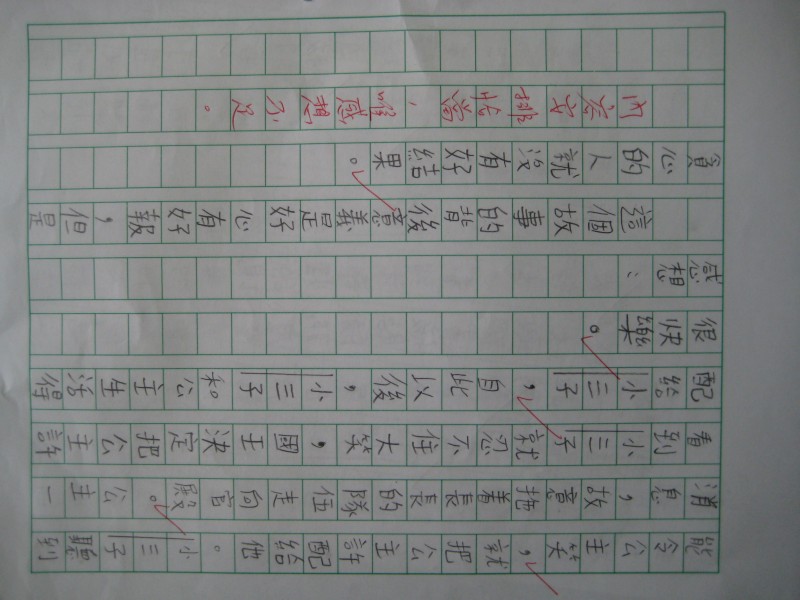 能令公主笑，就把公主許配給他。小三子聽到
消息，故意拖着長長的隊伍走向宮殿。公主一
看到小三子就忍不住大笑，國王決定把公主許
配給小三子，自此以後，小三子和公主生活得
很快樂。
感想：
這個故事的背後意義是好心有好報，但是
貪心的人就沒有好結果。
內容安排恰當，唯感想不足。